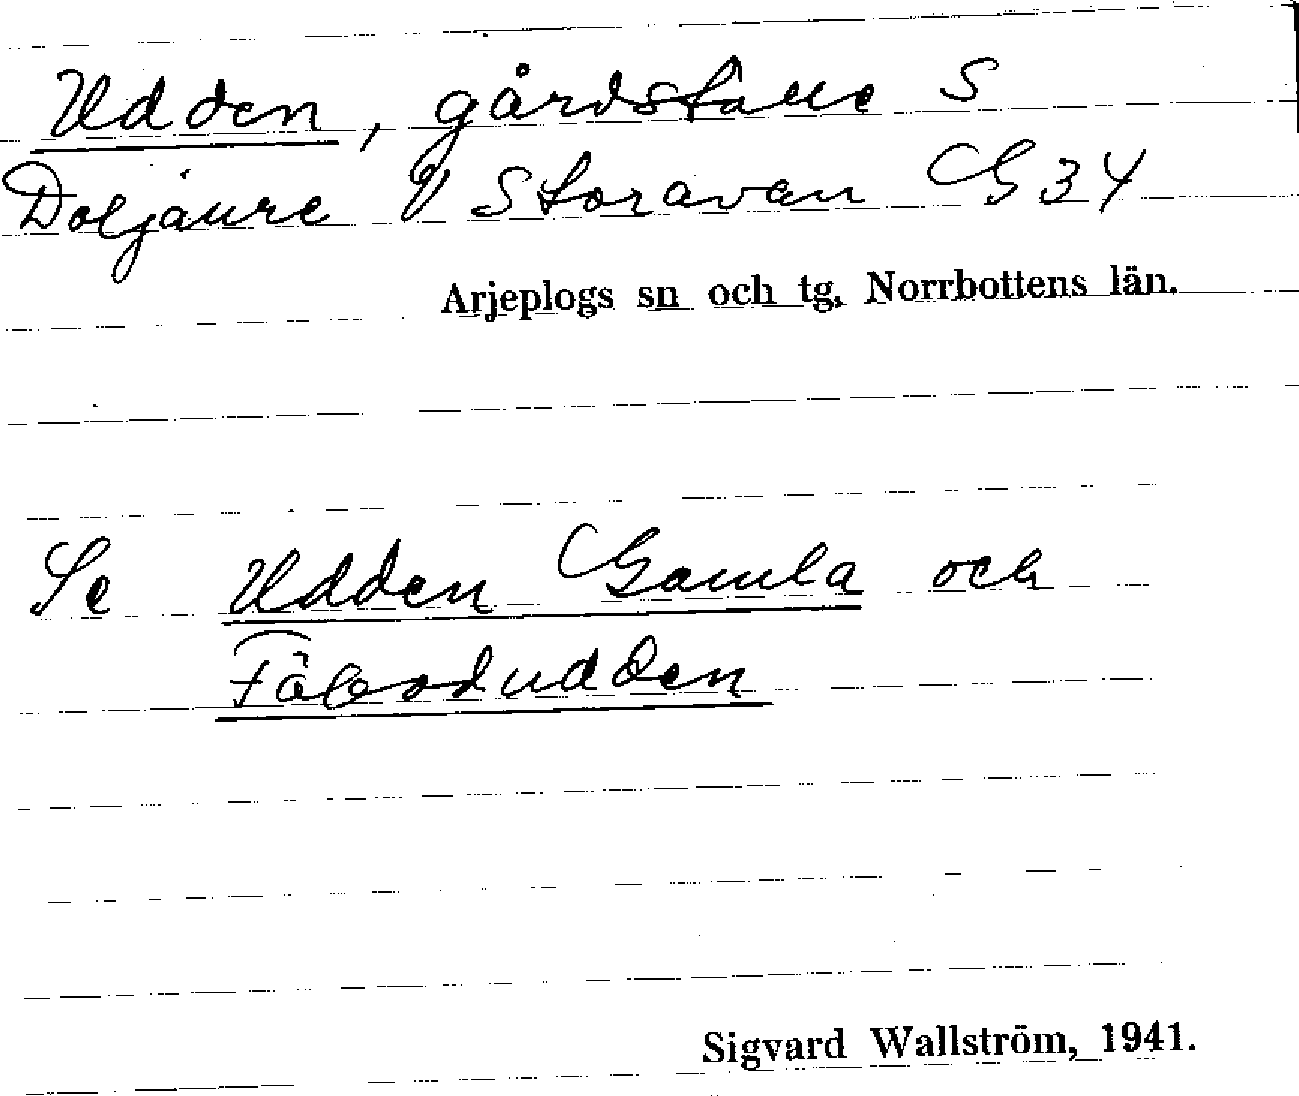 Udden, gårdställe S
Doljaure V Storavan G 34
Arjeplogs sn och tg, Norrbottens län.
Se Udden Gamla och
Fäbodudden
Sigvard Wallström, 1941.